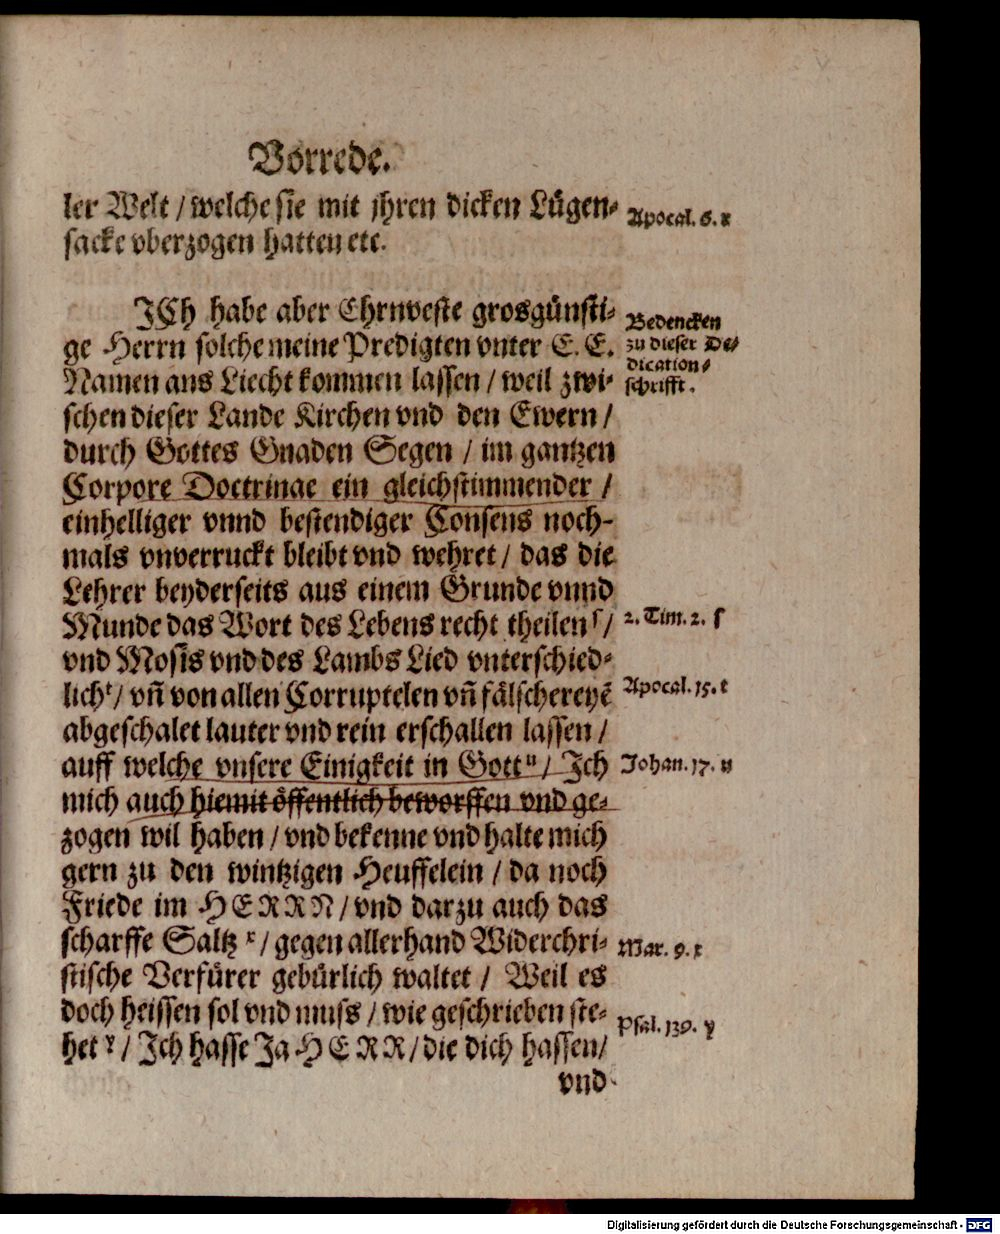 Vorrede.
ler Welt / welche sie mit jhren dicken Lügen⸗
sacke vberzogen hatten etc.
Apocal. 6. r
JCh habe aber Ehrnveste grosgünsti⸗
ge Herrn solche meine Predigten vnter E. E.
Namen ans Liecht kommen lassen / weil zwi⸗
schen dieser Lande Kirchen vnd den Ewern /
durch Gottes Gnaden Segen / im gantzen
Corpore Doctrinae ein gleichstimmender /
einhelliger vnnd bestendiger Consens noch-
mals vnverruckt bleibt vnd wehret / das die
Lehrer beyderseits aus einem Grunde vnnd
Munde das Wort des Lebens recht theilen ſ /
vnd Mosis vnd des Lambs Lied vnterschied⸗
lich t / vñ von allen Corruptelen vñ fälschereyẽ
abgeschalet lauter vnd rein erschallen lassen /
auff welche vnsere Einigkeit in Gott u / Jch
mich auch hiemit öffentlich beworffen vnd ge⸗
zogen wil haben / vnd bekenne vnd halte mich
gern zu den wintzigen Heuffelein / da noch
Friede im HERRN / vnd darzu auch das
scharffe Saltz x / gegen allerhand Widerchri⸗
stische Verfürer gebürlich waltet / Weil es
doch heissen sol vnd muss / wie geschrieben ste⸗
het y / Jch hasse Ja HERR / die dich hassen /
vnd
Bedencken
zu dieser De⸗
dication⸗
schrifft.
2. Tim. 2. ſ
Apocal. 15. t
Johan. 17. u
Mar. 9. x
Psal. 139. y
Digitalisierung gefördert durch die Deutsche Forschungsgemeinschaft - DFG